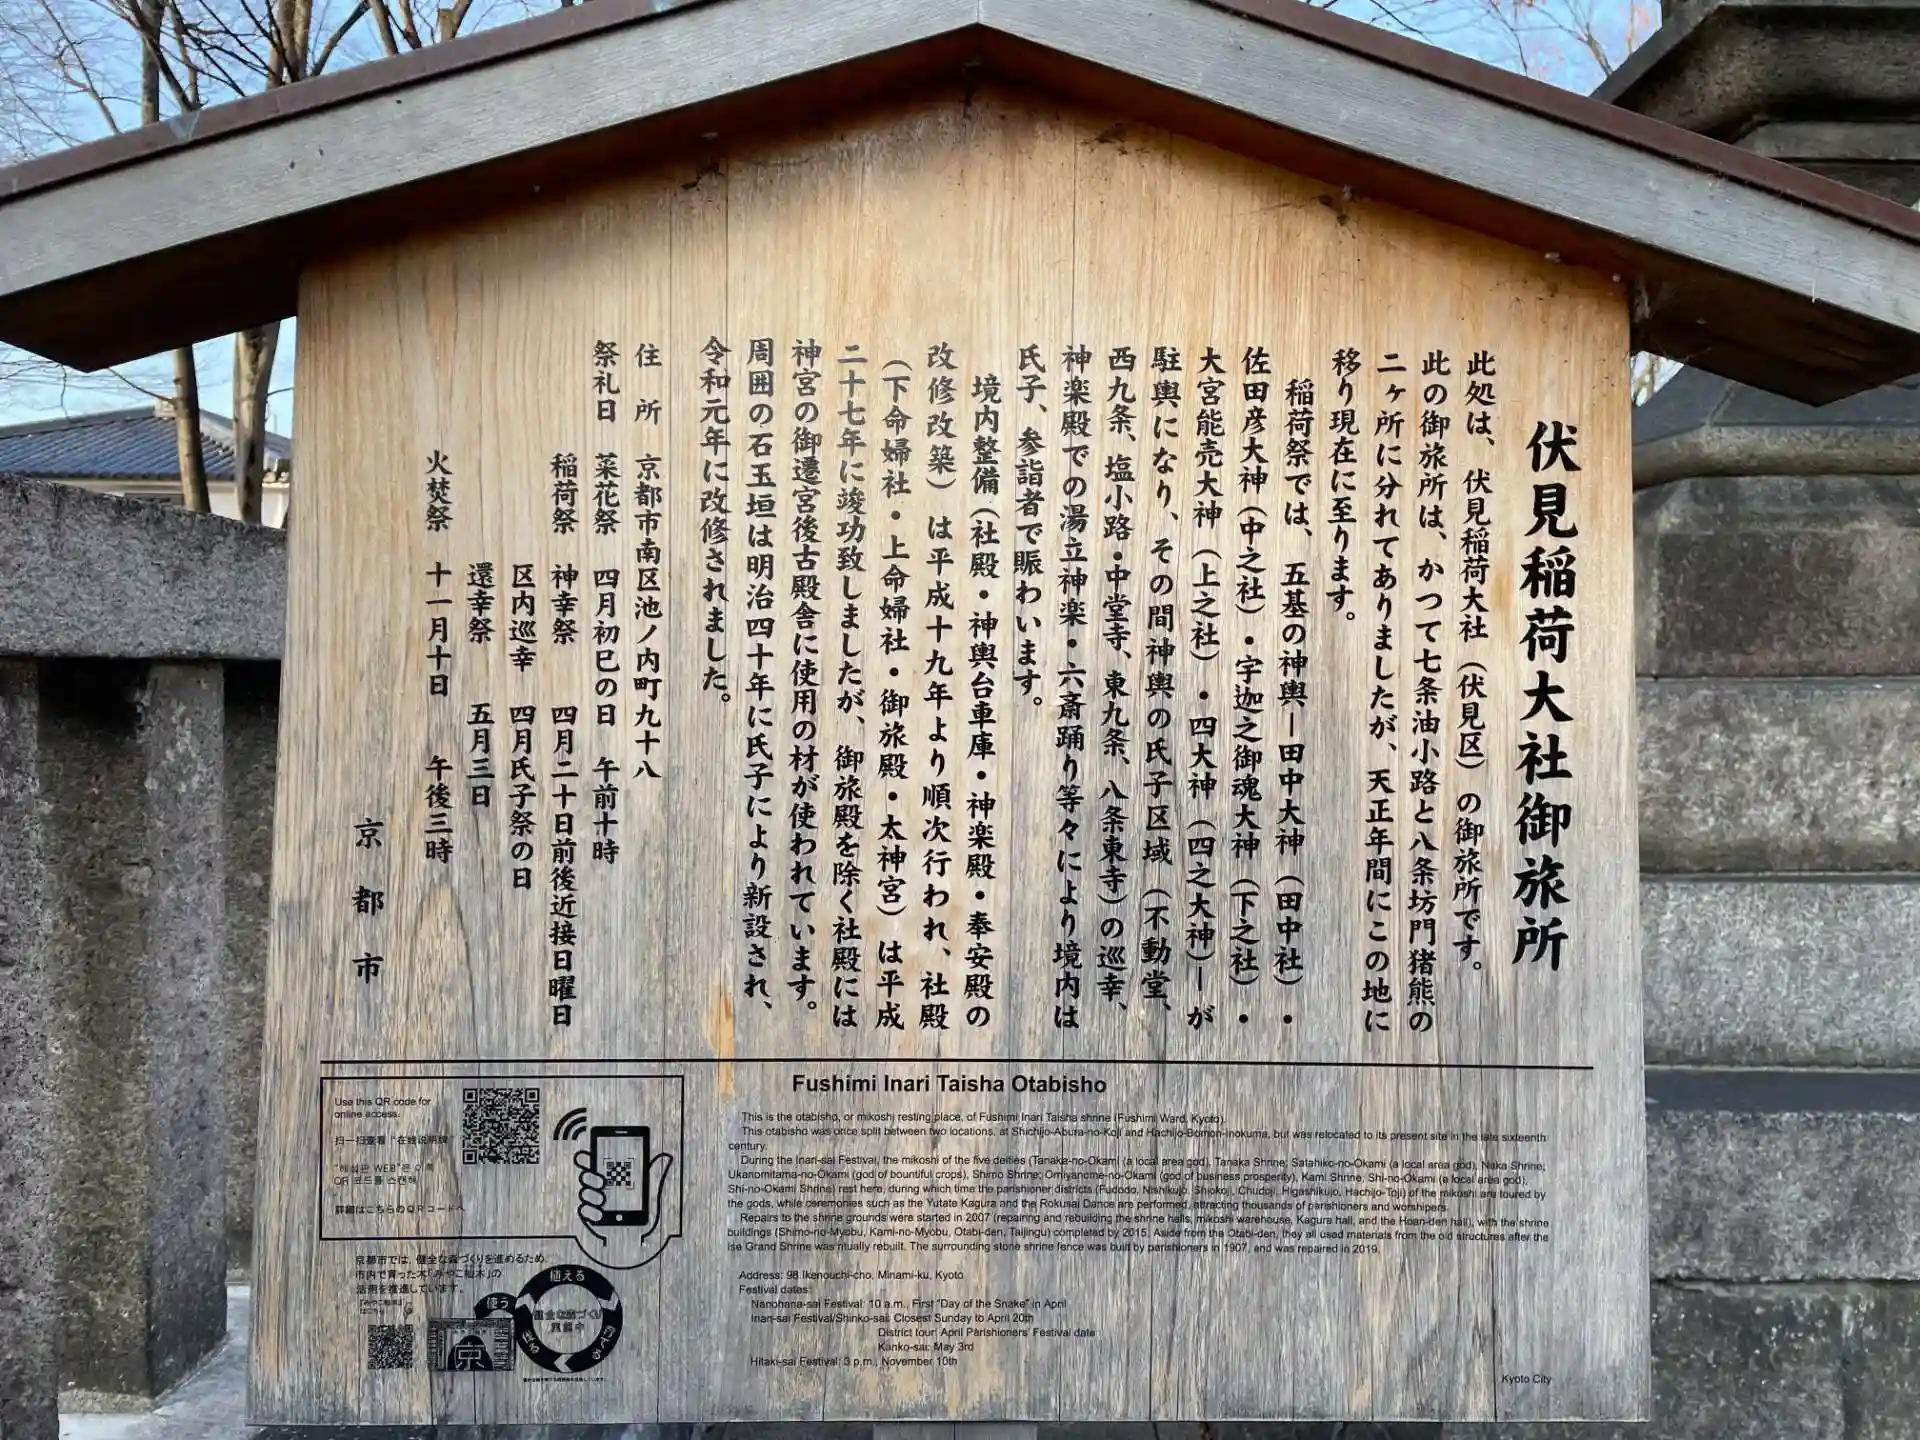 伏見稲荷大社御旅所
此処は、伏見稲荷大社（伏見区）の御旅所です。
此の御旅所は、かつて七条油小路と八条坊門猪熊の
二ヶ所に分れてありましたが、天正年間にこの地に
移り現在に至ります。
稲荷祭では、五基の神輿－田中大神（田中社）・
佐田彦大神（中之社）・宇迦之御魂大神（下之社）・
大宮能売大神（上之社）・四大神（四之大神）－が
駐輿になり、その間神輿の氏子区域（不動堂、
西九条、塩小路・中堂寺、東九条、八条東寺）の巡幸、
神楽殿での湯立神楽・六斎踊り等々により境内は
氏子、参詣者で賑わいます。
境内整備（社殿・神輿台車庫・神楽殿・奉安殿の
改修改築）は平成十九年より順次行われ、社殿
（下命婦社・上命婦社・御旅殿・太神宮）は平成
二十七年に竣功致しましたが、御旅殿を除く社殿には
神宮の御遷宮後古殿舎に使用の材が使われています。
周囲の石玉垣は明治四十年に氏子により新設され、
令和元年に改修されました。
住所 京都市南区池ノ内町九十八
祭礼日 菜花祭 四月初巳の日 午前十時
稲荷祭 神幸祭 四月二十日前後近接日曜日
区内巡幸 四月氏子祭の日
還幸祭 五月三日
火焚祭 十一月十日 午後三時
京都市
Fushimi Inari Taisha Otabisho
This is the otabisho, or mikoshi resting place, of Fushimi Inari Taisha shrine (Fushimi Ward, Kyoto).
This otabisho was once split between two locations, at Shichijo-Abura-no-Koji and Hachijo-Bomon-Inokuma, but was relocated to its present site in the late sixteenth
century.
During the Inari-sai Festival, the mikoshi of the five deities (Tanaka-no-Okami (a local area god), Tanaka Shrine; Satahiko-no-Okami (a local area god), Naka Shrine;
Ukanomitama-no-Okami (god of bountiful crops), Shimo Shrine; Omiyanome-no-Okami (god of business prosperity), Kami Shrine; Shi-no-Okami (a local area god),
Shi-no-Okami Shrine) rest here, during which time the parishioner districts (Fudodo, Nishikujo, Shiokoji, Chudoji, Higashikujo, Hachijo-Toji) of the mikoshi are toured by
the gods, while ceremonies such as the Yutate Kagura and the Rokusai Dance are performed, attracting thousands of parishioners and worshipers.
Repairs to the shrine grounds were started in 2007 (repairing and rebuilding the shrine halls, mikoshi warehouse, Kagura hall, and the Hoan-den hall), with the shrine
buildings (Shimo-no-Myobu, Kami-no-Myobu, Otabi-den, Taijingu) completed by 2015. Aside from the Otabi-den, they all used materials from the old structures after the
Ise Grand Shrine was ritually rebuilt. The surrounding stone shrine fence was built by parishioners in 1907, and was repaired in 2019.
Address: 98 Ikenouchi-cho, Minami-ku, Kyoto
Festival dates:
Nanohana-sai Festival: 10 a.m., First "Day of the Snake" in April
Inari-sai Festival/Shinko-sai: Closest Sunday to April 20th
District tour: April Parishioners' Festival date
Kanko-sai: May 3rd
Hitaki-sai Festival: 3 p.m., November 10th
Kyoto City
Use this QR code for
online access.
扫一扫查看"在线说明牌"
"해설판 WEB"은 이쪽
QR 코드를 스캔해
詳細はこちらのQRコードへ
京都市では、健全な森づくりを進めるため、
市内で育った木「みやこ杣木」の
活用を推進しています。
植える
使う
健全な森づくり
京